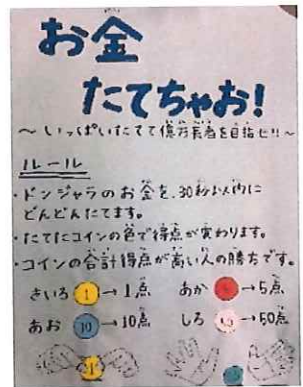 お金
たてちゃお!
～いっぱいたてて億万長者を目指せ!!～
ルール
・ドンジャラのお金を、30秒以内に
どんどんたてます。
・たてたコインの色で得点が変わります。
・コインの合計得点が高い人の勝ちです。
きいろ 1 → 1点 あか → 5点
あお 10 → 10点 しろ → 50点